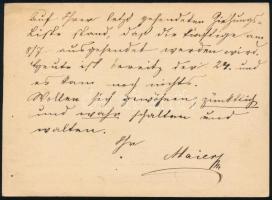 Auf Ihrer letzt gesendeten Ziehungs-
liste stand, daß die Beträge am
8/7 ausgesendet werden wird.
Heute ist bereits der 24. und
es kam noch nichts.
Wollen sich gewöhnen, pünktlich
und wahr schalten und
walten.
Ihr
Maier